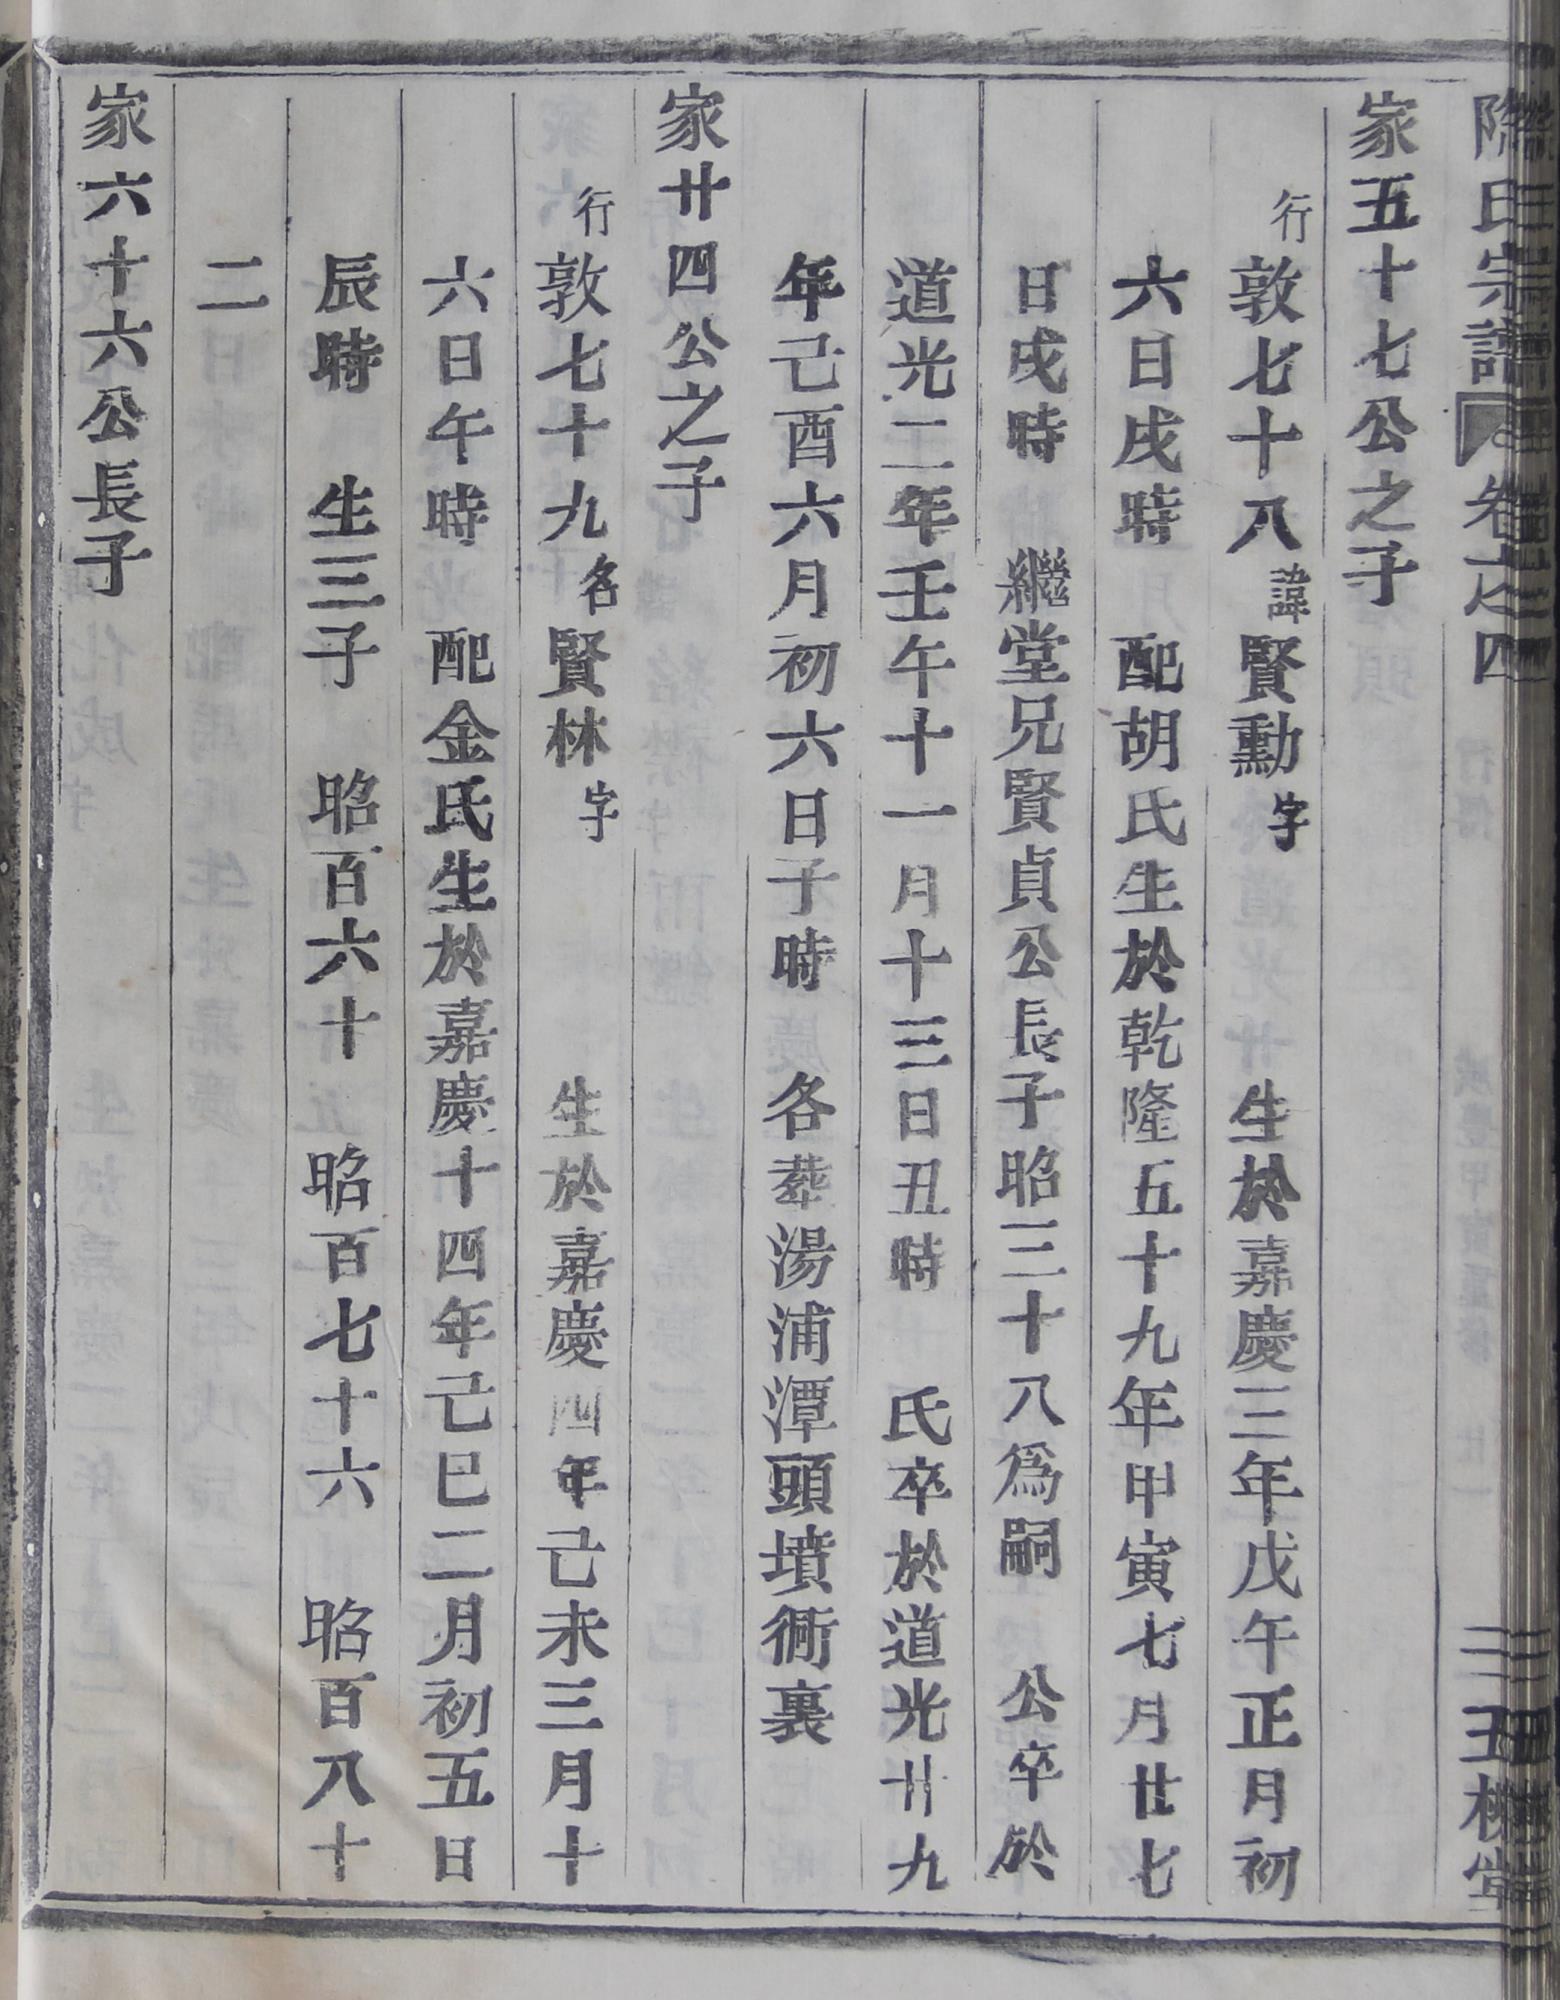 陳氏宗譜 卷之四
家五十七公之子
行敦七十八諱賢勳字 生於嘉慶三年戊午正月初
六日戌時 配胡氏生於乾隆五十九年甲寅七月廿七
日戌時 繼堂兄賢貞公長子昭三十八爲嗣 公卒於
道光二年壬午十一月十三日丑時 氏卒於道光廿九
年己酉六月初六日子時 各葬湯浦潭頭墳衕裏
家廿四公之子
行敦七十九名賢林字 生於嘉慶四年己未三月十
六日午時 配金氏生於嘉慶十四年己巳二月初五日
辰時 生三子 昭百六十 昭百七十六 昭百八十
二
家六十六公長子